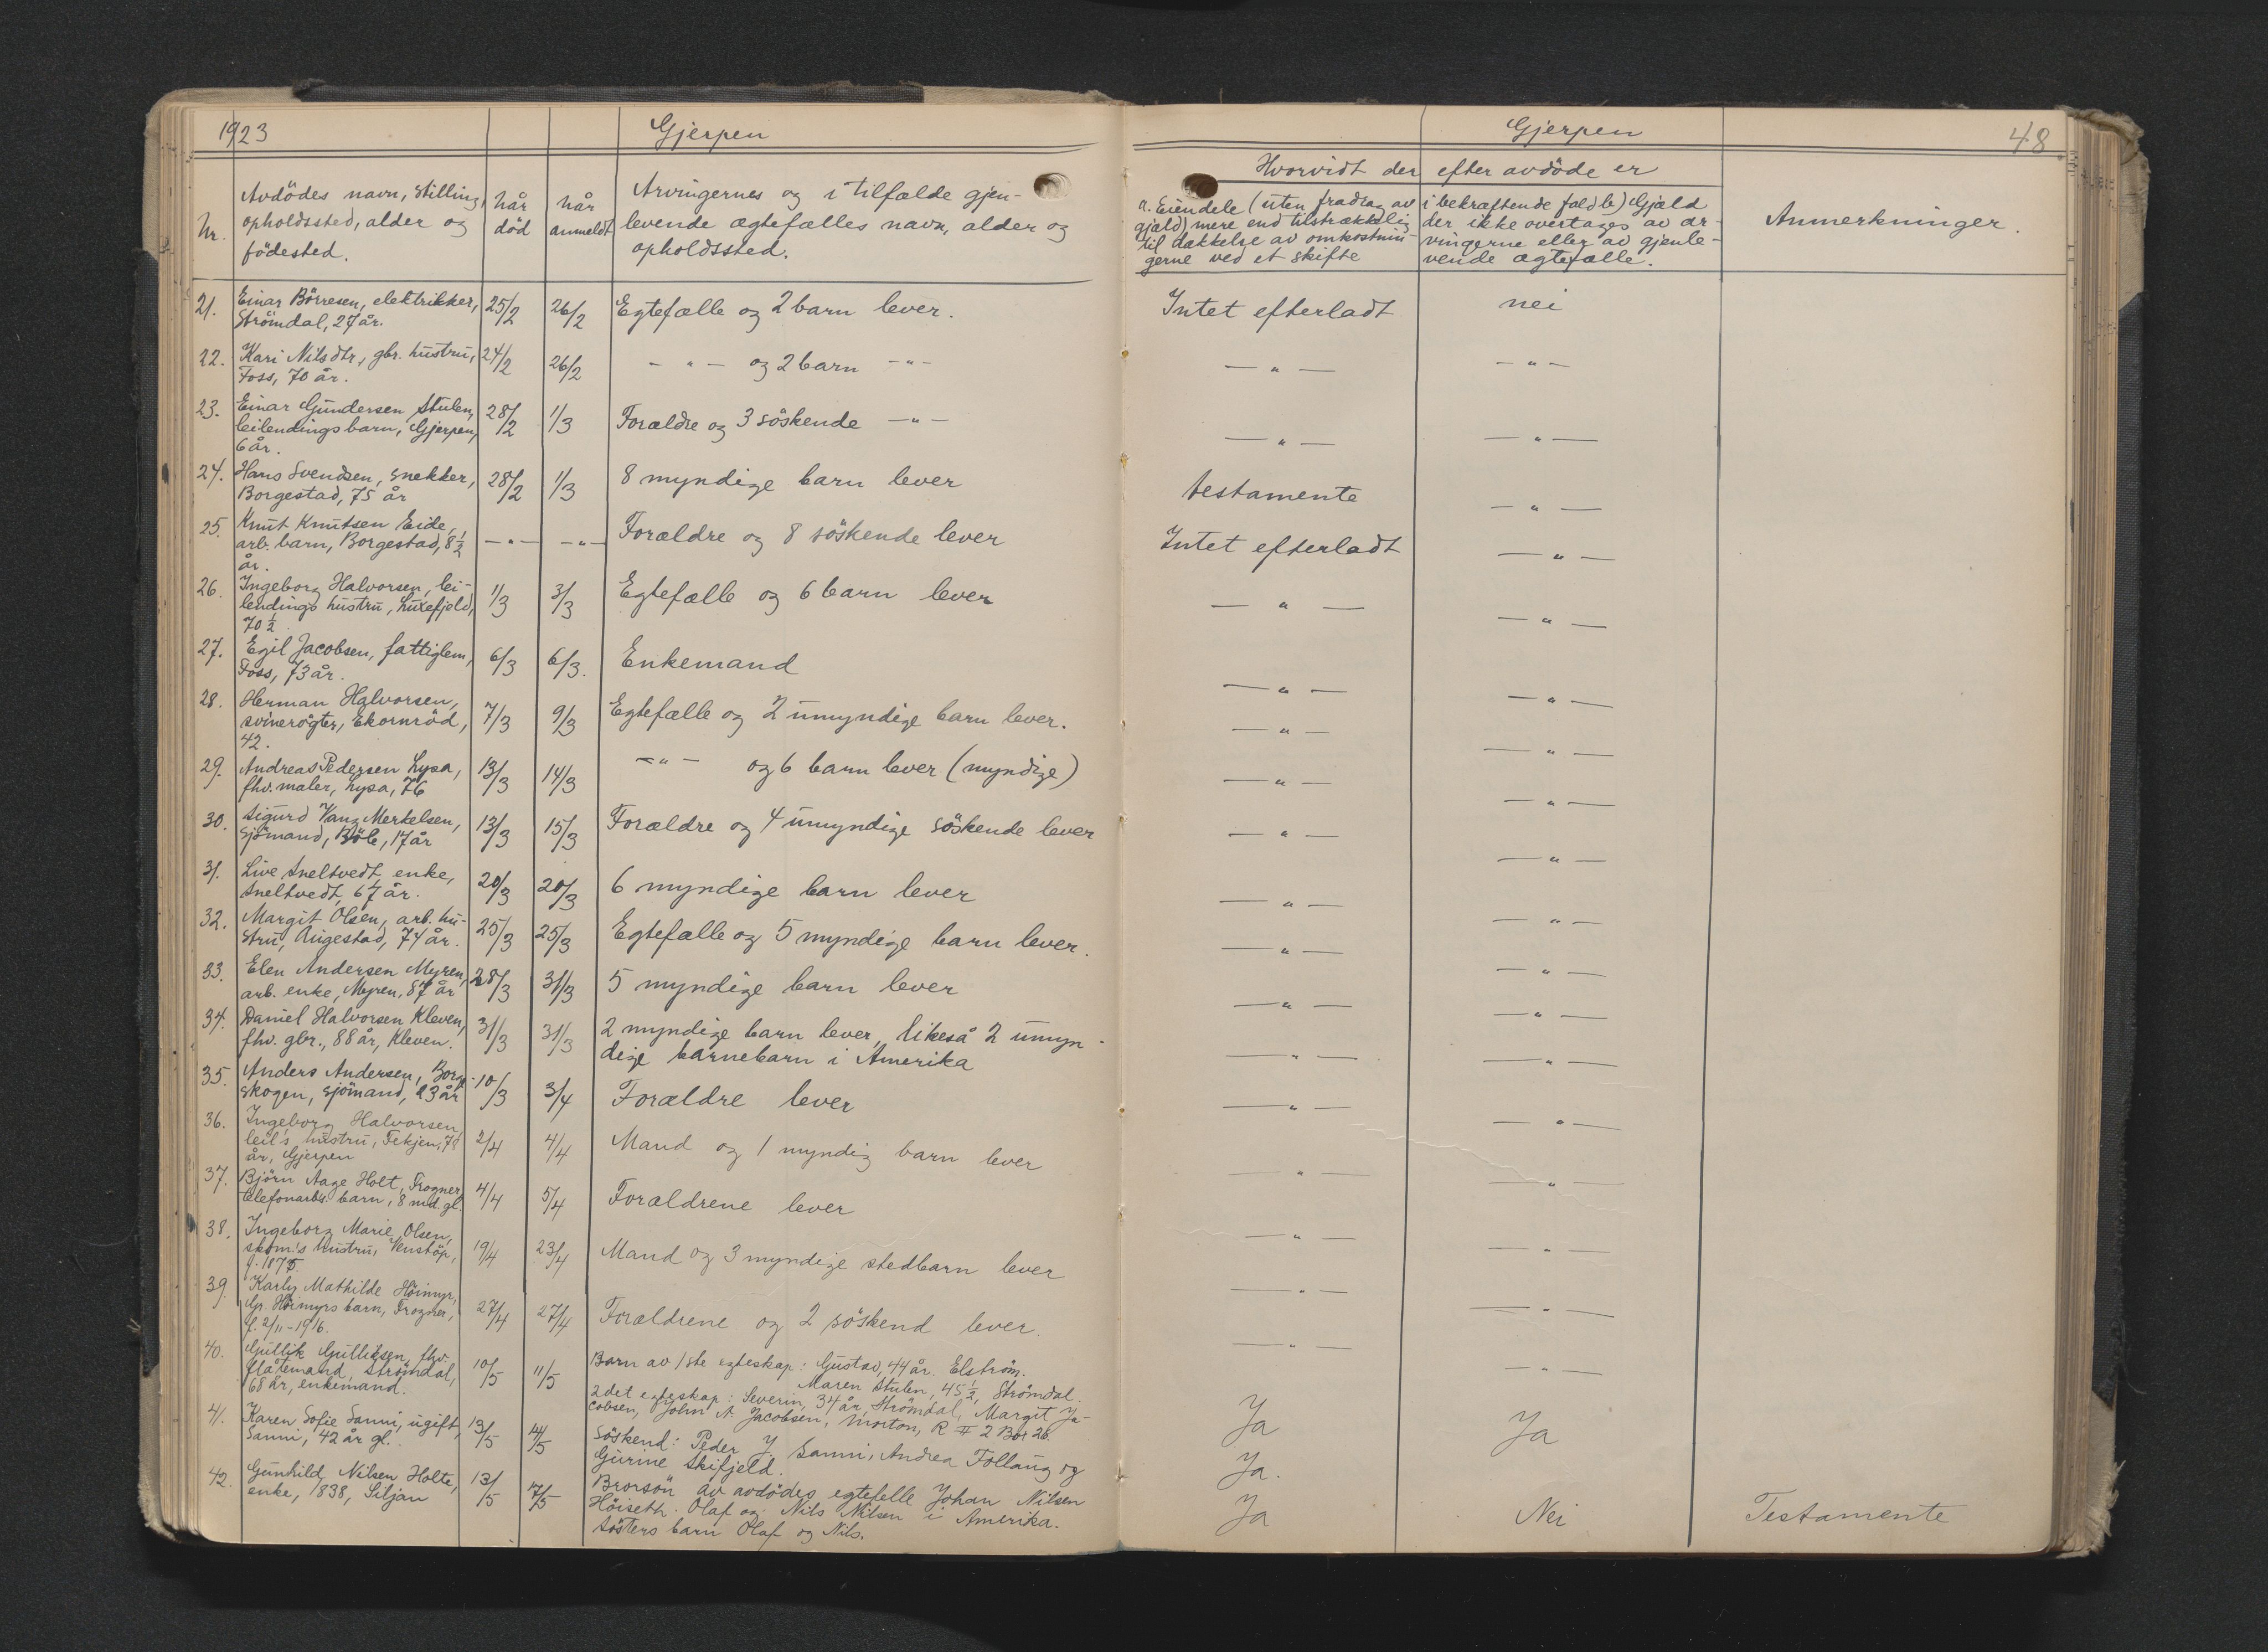 1923 Gjerpen
Nr.
Avdödes navn, stilling,
opholdssted, alder og
födested.
når
död
når
anmeldt
Arvingernes og i tilfælde gjen-
levende ægtefælles navn, alder og
opholdssted.
21. Einar Börresen, elektrikker, 25/2 26/2 Egtefælle og 2 barn lever.
Strömdal, 27 år.
22. Kari Nilsdtr, gbr. hustru, 24/2 26/2 - " - og 2 barn - " -
Foss, 70 år.
23. Einar Gundersen Stulen, 28/2 1/3 Forældre og 3 söskende - " -
leilendings barn, Gjerpen,
6 år.
24. Hans Svendsen, snekker, 28/2 1/3 8 myndige barn lever
Borgestad, 75 år
25. Knut Knutsen Eide, - " - - " - Forældre og 8 söskende lever
arb. barn, Borgestad, 8 1/2
år.
26. Ingeborg Halvorsen, lei- 1/3 3/3 Egtefælle og 6 barn lever
lendings hustru, Luxefjeld,
70 1/2
27. Egil Jacobsen, fattiglem, 6/3 6/3. Enkemand
Foss, 73 år.
28. Herman Halvorsen, 7/3 9/3 Egtefælle og 2 umyndige barn lever.
svinerögter, Ekornröd,
42.
29. Andreas Pedersen Lysa, 13/3 14/3 - " - og 6 barn lever (myndige)
fhv. maler, Lysa, 76
30. Sigurd Vang Merkelsen, 13/3 15/3 Forældre og 4 umyndige söskende lever
sjömand, Böle, 17 år
31. Live Sneltvedt, enke, 20/3 20/3 6 myndige barn lever
Sneltvedt, 67 år.
32. Margit Olsen, arb. hu- 25/3 25/3 Egtefælle og 5 myndige barn lever.
stru, Augestad, 74 år.
33. Elen Andersen Myren, 28/3 31/3 5 myndige barn lever
arb. enke, Myren, 87 år
34. Daniel Halvorsen Kleven, 31/3 31/3 2 myndige barn lever, likeså 2 umyn-
fhv. gbr., 88 år, Kleven. dige barnebarn i Amerika
35. Anders Andersen, Borge- 10/3 3/4 Forældre lever
skogen, sjömand, 23 år
36. Ingeborg Halvorsen, 2/4 4/4 Mand og 1 myndig barn lever
leil's hustru, Fekjen, 78
år, Gjerpen
37. Björn Aage Holt, Frogner, 4/4 5/4 Forældrene lever
telefonarb's. barn, 8 md. gl.
38. Ingeborg Marie Olsen, 19/4 23/4 Mand og 3 myndige stedbarn lever
skom.'s hustru, Venstöp,
f. 1875.
39. Karly Mathilde Höimyr, 27/4 27/4 Forældrene og 2 söskend lever.
Gr. Höimyrs barn, Frogner,
f. 2/11-1916.
40. Gullik Gulliksen, fhv. 10/5 11/5 Barn av 1ste egteskap: Gustav, 44 år. Elström.
flåtemand, Strömdal, Maren Stulen, 45 1/2, Strömdal.
68 år, enkemand. 2det egteskap: Severin, 34 år, Strömdal, Margit Ja-
cobsen, John A. Jacobsen, Morton, R # 2 Box 26.
41. Karen Sofie Sanni, ugift, 13/5 14/5 Söskend: Peder J. Sanni, Andrea Follaug og
Sanni, 42 år gl. Gurine Skifjeld.
42. Gunhild Nilsen Holte, 13/5 17/5 Brorsön av avdödes egtefelle Johan Nilsen
enke, 1838, Siljan Höiseth. Olaf og Nils Nilsen i Amerika.
Sösters barn Olaf og Nils.
Gjerpen 48
Hvorvidt der efter avdöde er
a. Eiendele (uten fradrag av
gjæld) mere end tilstrækkelig
til dækkelse av omkostnin-
gerne ved et skifte
i bekræftende fald b) Gjæld
der ikke overtages av ar-
vingerne eller av gjenle-
vende ægtefælle.
Anmerkninger.
Intet efterladt nei
- " - - " -
- " - - " -
testamente - " -
Intet efterladt - " -
- " - - " -
- " - - " -
- " - - " -
- " - - " -
- " - - " -
- " - - " -
- " - - " -
- " - - " -
- " - - " -
- " - - " -
- " - - " -
- " - - " -
- " - - " -
- " - - " -
Ja Ja
Ja.
Ja Nei Testamente